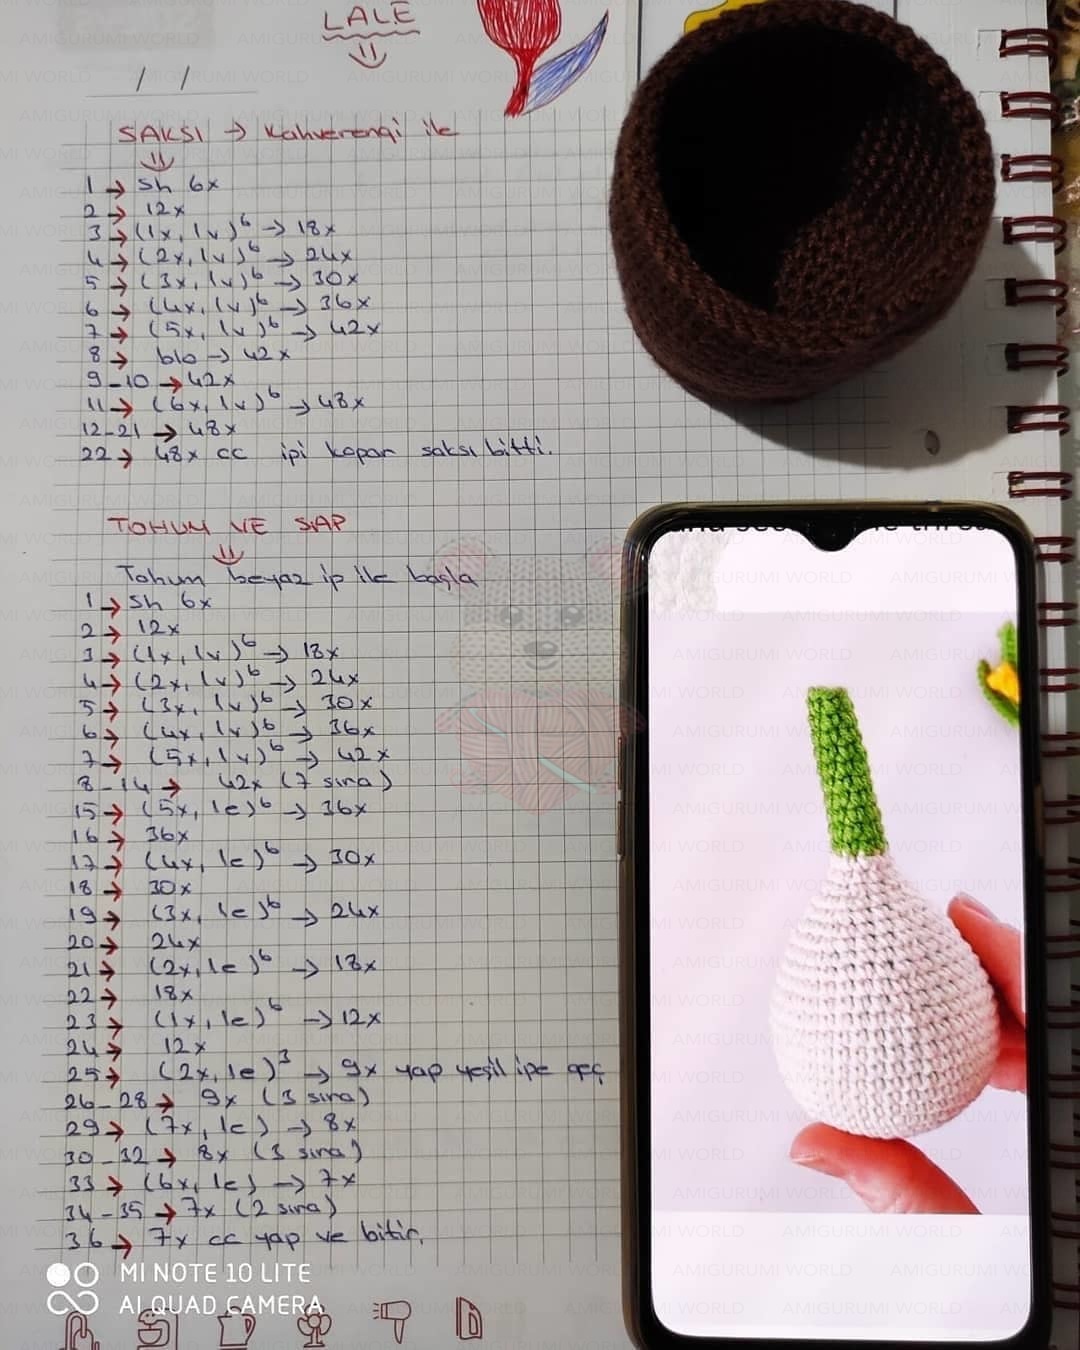 LALE
SAKSI → Kahverengi ile
1 → sh 6x
2 → 12x
3 → (1x, 1v)⁶ → 18x
4 → (2x, 1v)⁶ → 24x
5 → (3x, 1v)⁶ → 30x
6 → (4x, 1v)⁶ → 36x
7 → (5x, 1v)⁶ → 42x
8 → blo → 42x
9-10 → 42x
11 → (6x, 1v)⁶ → 48x
12-21 → 48x
22 → 48x cc ipi kopar saksı bitti.
TOHUM VE SAP
Tohum beyaz ip ile başla
1 → sh 6x
2 → 12x
3 → (1x, 1v)⁶ → 18x
4 → (2x, 1v)⁶ → 24x
5 → (3x, 1v)⁶ → 30x
6 → (4x, 1v)⁶ → 36x
7 → (5x, 1v)⁶ → 42x
8-14 → 42x (7 sıra)
15 → (5x, 1e)⁶ → 36x
16 → 36x
17 → (4x, 1e)⁶ → 30x
18 → 30x
19 → (3x, 1e)⁶ → 24x
20 → 24x
21 → (2x, 1e)⁶ → 18x
22 → 18x
23 → (1x, 1e)⁶ → 12x
24 → 12x
25 → (2x, 1e)³ → 9x yap yeşil ipe geç
26-28 → 9x (3 sıra)
29 → (7x, 1e) → 8x
30-32 → 8x (3 sıra)
33 → (6x, 1e) → 7x
34-35 → 7x (2 sıra)
36 → 7x cc yap ve bitir.
MI NOTE 10 LITE
AI QUAD CAMERA
AMIGURUMI WORLD